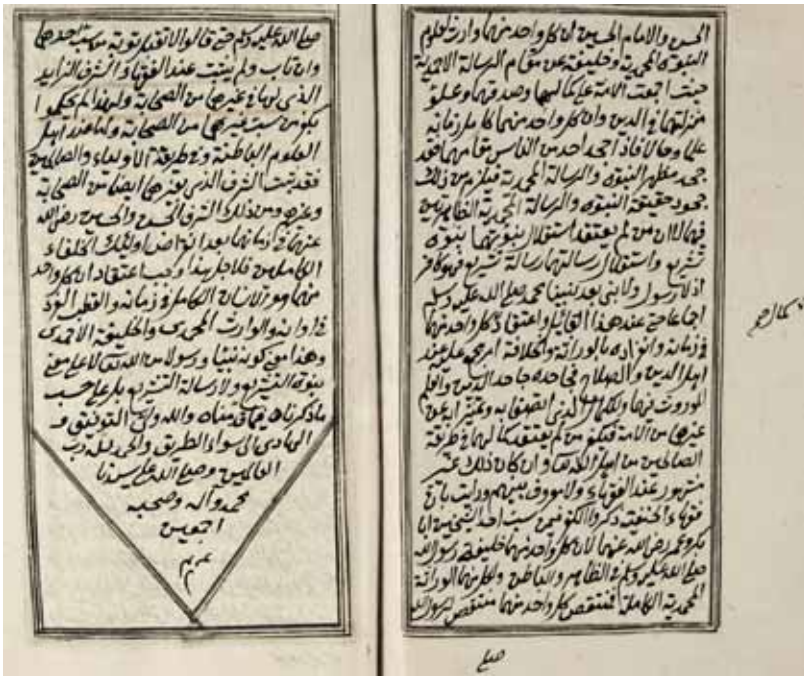 الحسن والامام الحسين ان كل واحد منهما وارث لعلوم
النبوة المحمدية وخليفة عن مقام الرسالة الاحمدية
حيث اجمعت الامة على كمالهما وصدقهما وعلو
منزلتهما في الدين وان كل واحد منهما كامل زمانه
علما وحالا فاذا جحد احد من الناس مقامهما فقد
جحد مظهر النبوة والرسالة المحمدية فيلزم من ذلك
جحود حقيقة النبوة والرسالة المحمدية الظاهرتين
فيهما لا ان من لم يعتقد استقلال نبوتهما نبوة
تشريع واستقلال رسالتهما رسالة تشريع فهو كافر
اذ لا رسول ولا نبي بعد نبينا محمد صلى الله عليه وسلم
اجماعا حتى عند هذا القائل واعتقاد كل واحد منهما
في زمانه وانفراده بالوراثة والخلافة امر مجمع عليه عند
اهل الدين والصلاح فجاحده جاحد الدين والعلم
الموروث فيهما والكمال الذي اتصفا به وتميزا عن
غيرهما من الامة فيكفر من لم يعتقد كمالهما في طريقة
الصالحين من اهل الله تعالى وان كان ذلك غير
مشهور عند الفقهاء ولا معروف بينهم ورأيت باقي
فقهاء الحنفية ذكروا الكفر بمن سب احد الشيخين ابا
بكر وعمر رضي الله عنهما لان كل واحد منهما خليفة رسول الله
صلى الله عليه وسلم في الظاهر والباطن ولكل منهما الوراثة
المحمدية الكاملة فمنتقص كل واحد منهما منتقص لرسول الله
صلى
صلى الله عليه وسلم حتى قالوا لا تقبل توبة من سب احدهما
وان تاب ولم يثبت عند الفقهاء الشرف الزايد
الذي لهما في غيرهما من الصحابة ولهذا لم يحكموا
بكفر من سب غيرهما من الصحابة واما عند اهل
العلوم الباطنة وفي طريقة الاولياء والصالحين
فقد ثبت الشرف الذي لغيرهما ايضا من الصحابة
وغيرهم ومن ذلك الشرف الحسن والحسين رضي الله
عنهما في زمانهما بعد انقراض اولئك الخلفاء
الكاملين فلاجل هذا وجب اعتقاد ان كل واحد
منهما هو الانسان الكامل في زمانه والقطب الفرد
في اوانه والوارث المحمدي والخليفة الاحمدي
وهذا معنى كونه نبيا ورسولا من الله تعالى لا على معنى
نبوة التشريع ولا رسالة التشريع بل على حسب
ما ذكرناه وقدمناه والله ولي التوفيق و
الهادي الى سواء الطريق والحمد لله رب
العالمين وصلى الله على سيدنا
محمد وآله وصحبه
اجمعين